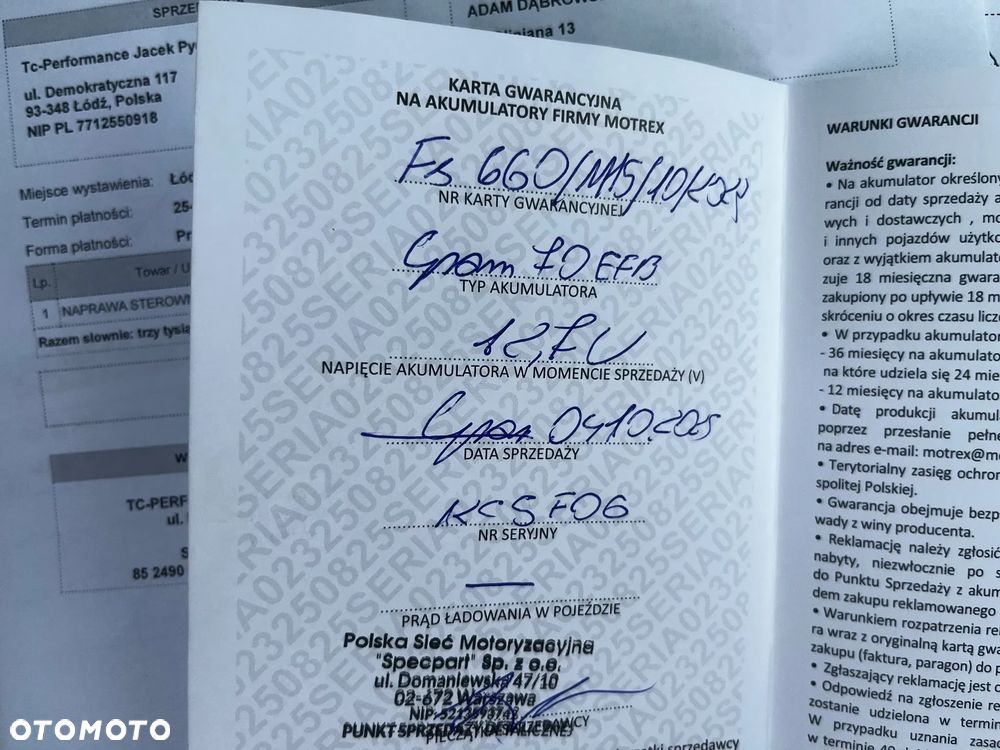 SPRZE
Tc-Performance Jacek Py
ul. Demokratyczna 117
93-348 Łódź, Polska
NIP PL 7712550918
Miejsce wystawienia: Łód
Termin płatności: 25-
Forma płatności: Pr
Lp. Towar / U
1 NAPRAWA STEROWN
Razem słownie: trzy tysią
W
TC-PERF
ul.
S
85 2490
ADAM DĄBROW
13
KARTA GWARANCYJNA
NA AKUMULATORY FIRMY MOTREX
NR KARTY GWARANCYJNEJ
70 EFB
TYP AKUMULATORA
12,7V
NAPIĘCIE AKUMULATORA W MOMENCIE SPRZEDAŻY (V)
DATA SPRZEDAŻY
KCSF06
NR SERYJNY
PRĄD ŁADOWANIA W POJEŹDZIE
Polska Sieć Motoryzacyjna
"Specpart" Sp. z o.o.
ul. Domaniewska 47/10
02-672 Warszawa
NIP:
PUNKT SPRZEDAŻY DETALICZNEJ
WARUNKI GWARANCJI
Ważność gwarancji:
• Na akumulator określony
rancji od daty sprzedaży a
wych i dostawczych , mo
i innych pojazdów użytko
oraz z wyjątkiem akumulato
zuje 18 miesięczna gwara
zakupiony po upływie 18 m
skróceniu o okres czasu licz
• W przypadku akumulator
- 36 miesięcy na akumulato
na które udziela się 24 mie
- 12 miesięcy na akumulato
• Datę produkcji akumula
poprzez przesłanie pełne
na adres e-mail: motrex@mo
• Terytorialny zasięg ochron
spolitej Polskiej.
• Gwarancja obejmuje bezp
wady z winy producenta.
• Reklamację należy zgłosić
nabyty, niezwłocznie po s
do Punktu Sprzedaży z akum
dem zakupu reklamowanego
• Warunkiem rozpatrzenia re
ra wraz z oryginalną kartą gwa
zakupu (faktura, paragon) do p
• Zgłaszający reklamację jest o
• Odpowiedź na zgłoszenie re
zostanie udzielona w termin
W przypadku uznania zasad
w terminie
sprzedawcy
OTOMOTO